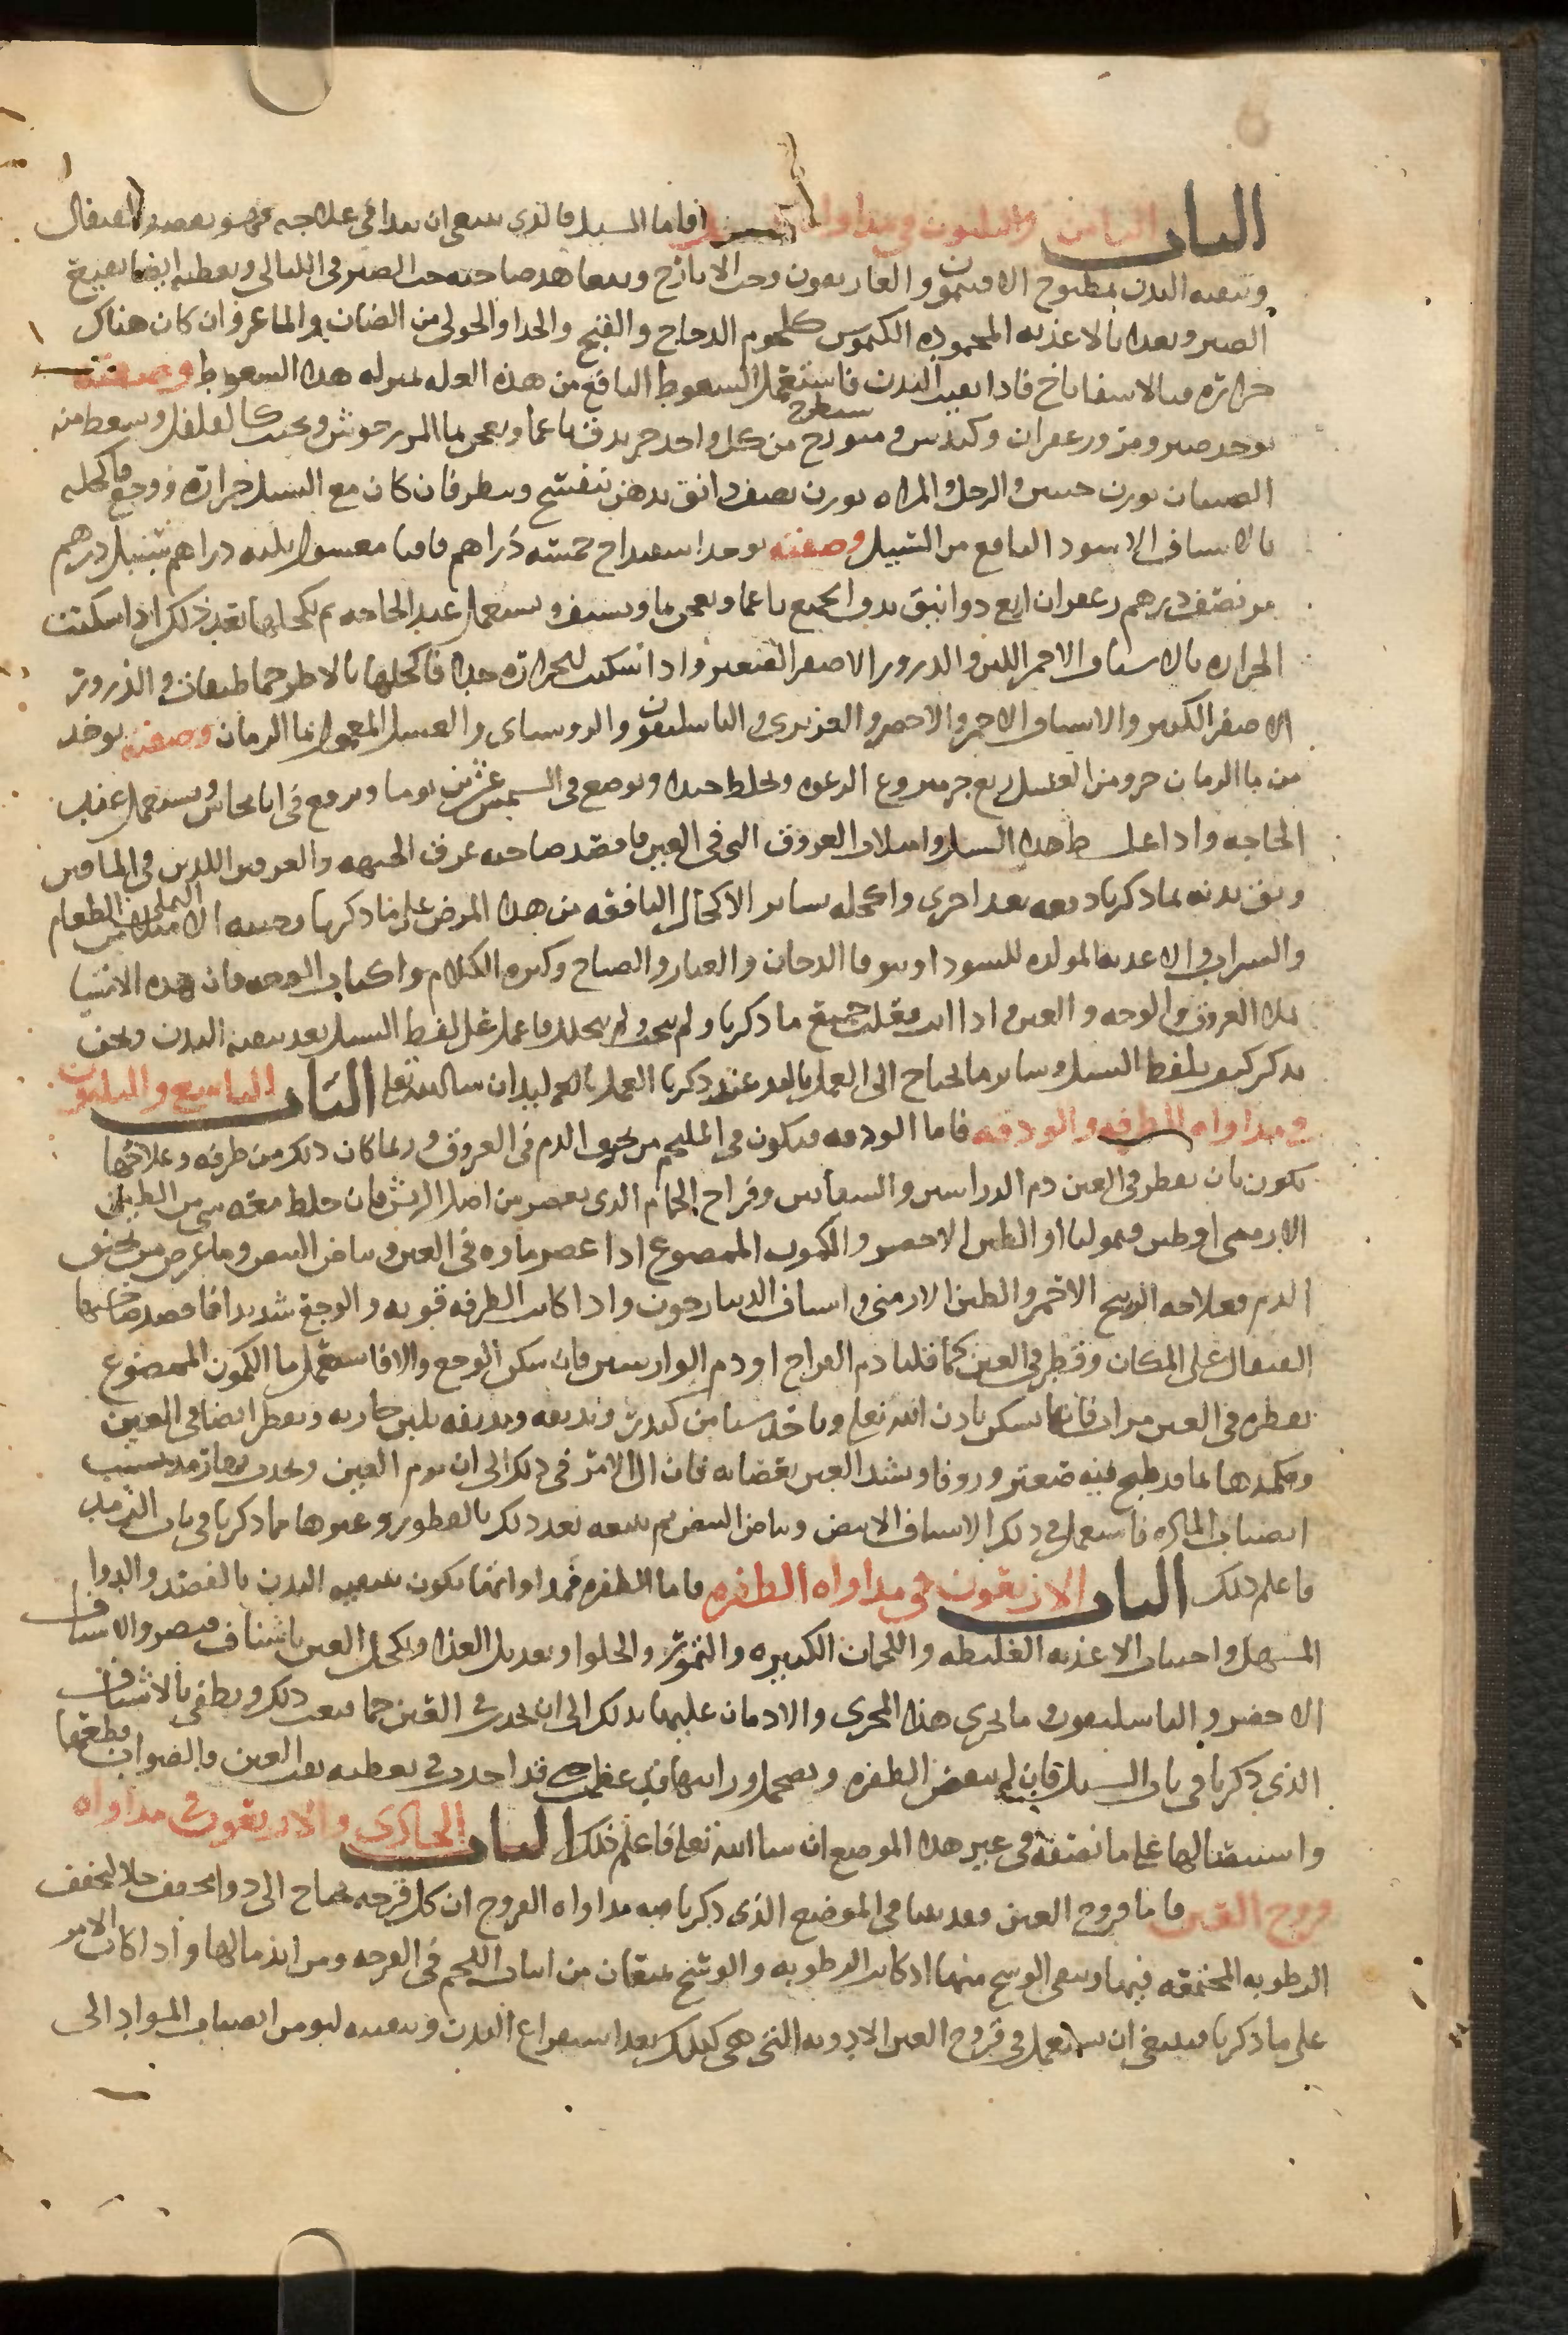 الباب الثامن والثلثون في مداواة السبل فاما السبل فالذي ينبغي ان يبدا في علاجه فهو بفصد القيفال
وتنقيه البدن بمطبوخ الافتيمون والغاريقون وحب الايارج ويتعاهد صاحبه حب الصبر في الليالي ويعطيه ايضا نقيع
الصبر وبعدا بالاغذيه المحموده الكيموس كلحوم الدجاج والقبج والجدا والحولي من الضان والماعز وان كان هناك
حراره فبالاسفاناخ فاذا نقيت البدن فاستعمل السعوط النافع من هذه العله بمنزله هذا السعوط وصفته
يوخذ صبر ومر وزعفران وكندس من كل واحد جز يدق ناعما ويعجن بما المرزجوش ويحبب كالفلفل وسعط منه
الصبيان بوزن حبتين والرجل والمراه بوزن نصف دانق بدهن بنفسج وينظر فان كان مع السبل حراره ووجع فاكحله
بالاشياف الاسود النافع من السبل وصفته يوخذ اسفيداج خمسه دراهم قاقيا مغسول ثلثه دراهم سنبل درهم
مر نصف درهم زعفران اربع دوانيق يدق الجميع ناعما ويعجن بما ويشيف ويستعمل عند الحاجه ثم يكحلها بعد ذلك اذا سكنت
الحراره بالاشياف الاحمر اللين والذرور الاصفر الصغير واذا سكنت الحراره جيدا فاكحلها بالاطرخماطيقان والذرور
الاصفر الكبير والاشياف الاحمر والاخضر والعزيزي والباسليقون والروسناي والعسل المعمول بما الرمان وصفته يوخذ
من ما الرمان جز ومن العسل ربع جز منزوع الرغوه ويخلط جيدا ويوضع في الشمس عشرين يوما ويرفع في انا نحاس ويستعمل عند
الحاجه واذا غلظ هذا السبل وامتلات العروق التي في العين فافصد صاحبه عرق الجبهه والعرقين اللذين في الماقين
ونق بدنه بما ذكرنا دفعه بعد اخرى واكحله بساير الاكحال النافعه من هذا المرض على ما ذكرنا وجنبه الامتلا من الطعام
والشراب والاغذيه المولده للسودا وتوقا الدخان والغبار والصياح وكثره الكلام واكباب الوجه فان هذه الاشيا
تملا العروق والوجه والعين واذا انت فعلت جميع ما ذكرنا ولم ينجع ولم يتحلل فاعمل على لقط السبل بعد تنقيه البدن ونحن
نذكر كيف يلقط السبل وساير ما يحتاج الى العمل باليد عند ذكرنا العمل باليد ان شا الله تعا الباب التاسع والثلثون
في مداواه الطرفه والودقه فاما الودقه فتكون في الملتحم من الدم في العروق وربما كان ذلك من طرفه وعلاجها
يكون بان يقطر في العين دم الوراشين والشفانين وفراخ الحمام الذي يعصر من اصل الريش فان خلط معه شي من الطين
الارمني او طين قيموليا او الطين الاخضر والكمون الممضوغ اذا عصر ماوه في العين وبياض البيض وما عرض من
الدم فعلاجه الزرنيخ الاحمر والطين الارمني واشياف الدينارجون واذا كانت الطرفه قويه والوجع شديدا فافصد صاحبها
القيفال على المكان وقطر في العين كما قلنا دم الفراخ او دم الوارشين فان سكن الوجع والا فاستعمل ما الكمون الممضوغ
يقطره في العين مرار فانها تسكن باذن الله تعا وياخذ شيا من كندر ويديفه بلبن جاريه ويقطر ايضا في العين
ويكمدها بما قد طبخ فيه صعتر وزوفا ويشد العين بعصابه فان ال الامر في ذلك الى ان يرم العين ويحدث بها رمد بسبب
انصباب الماده فاستعمل في ذلك الاشياف الابيض وبياض البيض ثم يتبعه بعد ذلك بالقطور وغيرها مما ذكرنا في باب الرمد
فاعلم ذلك الباب الاربعون في مداواه الظفره فاما الظفره فمداواتها يكون بتنقيه البدن بالفصد والدوا
المسهل واجتناب الاغذيه الغليظه واللحمان الكبيره والتمور والحلوا وتعديل الغذا ويكحل العين باشياف قيصر والاشياف
الاخضر والباسليقون وما يجري هذا المجرى والادمان عليها بذلك الى ان يحدث في العين حما فيغب ذلك ويطفي بالاشياف
الذي ذكرنا في باب السبل فان لم ينقص الظفره ويضمحل ورايتها قد عظمت قد اخذت في تغطيه نقب العين فالصواب قطعها
واستيصالها على ما نصفه في غير هذا الموضع ان شا الله تعا فاعلم ذلك الباب الحادي والاربعون في مداواه
قروح العين فاما قروح العين فقد بينا في الموضع الذي ذكرنا فيه مداواه القروح ان كل قرحه تحتاج الى دوا مجفف جلا ليجفف
الرطوبه المجتمعه فيها وينقي الوسخ منها اذ كانت الرطوبه والوسخ يمنعان من انبات اللحم في القرحه ومن اندمالها واذا كان الامر
على ما ذكرنا فينبغي ان يستعمل في قروح العين الادويه التي هي كذلك بعد استفراغ البدن وتنقيته ليومن انصباب المواد الى